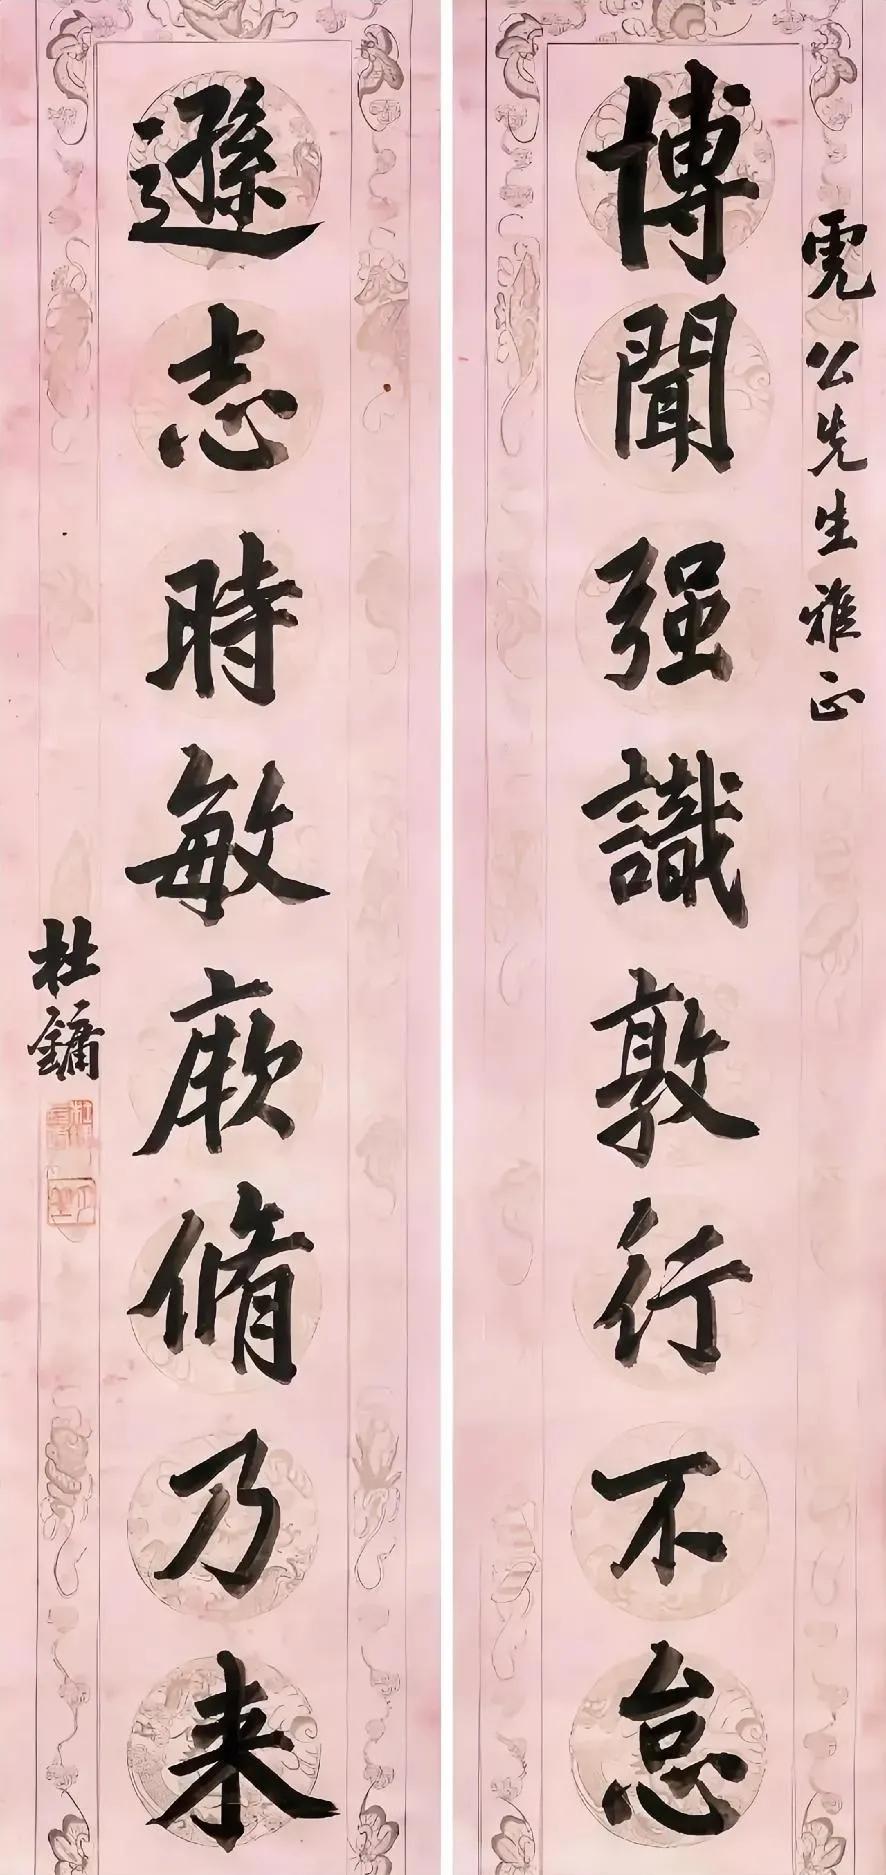 公先生雅正
博聞强識敦行不怠
遜志時敏厥脩乃来
杜鏞